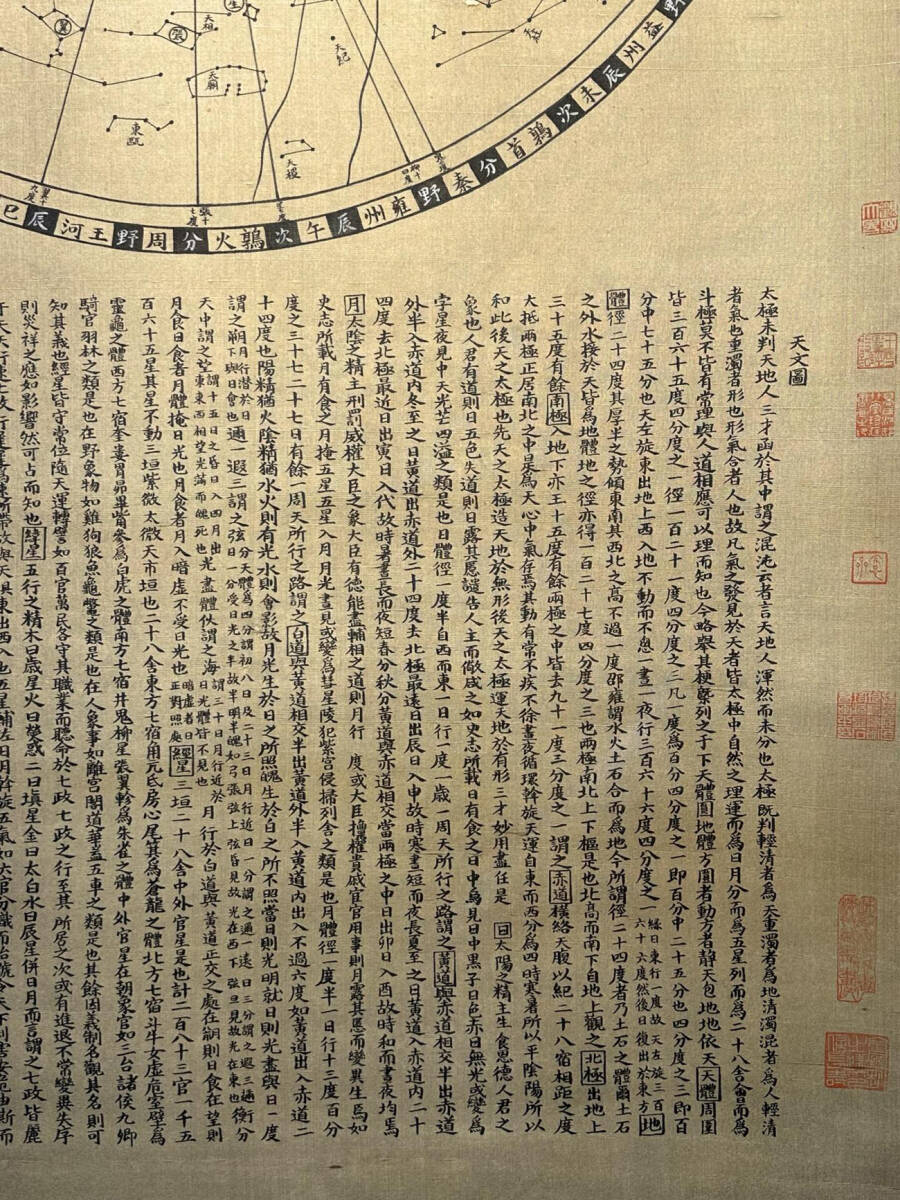 天文圖
太極未判天地人三才函於其中謂之混沌云者言天地人渾然而未分也太極既判輕清者為天重濁者為地清濁混者為人輕清
者氣也重濁者形也形氣合者人也故凡氣之發見於天者皆太極中自然之理運而為日月分而為五星列而為二十八舍會而為
斗極莫不皆有常理與人道相應可以理而知也今略舉其梗槩列之于下天體圓地體方圓者動方者靜天包地地依天天體周圍
皆三百六十五度四分度之一徑一百二十一度四分度之三凡一度為百分四分度之一即百分中二十五分也四分度之三即百
分中七十五分也天左旋東出地上西入地下動而不息一晝一夜行三百六十六度四分度之一緣日東行一度故天左旋三百六十六度然後日復出於東方地
體徑二十四度其厚半之勢傾東南其西北之高不過一度邵雍謂水火土石合而為地今所謂徑二十四度者乃土石之體爾土石
之外水接於天皆為地體地之徑亦得一百二十七度四分度之三也兩極南北上下樞是也北高而南下自地上觀之北極出地上
三十五度有餘南極入地下亦三十五度有餘兩極之中皆去九十一度三分度之一謂之赤道橫絡天腹以紀二十八宿相距之度
大抵兩極正居南北之中是為天心中氣存焉其動有常不疾不徐晝夜循環斡旋天運自東而西分為四時寒暑所以平陰陽所以
和此後天之太極也先天之太極造天地於無形後天之太極運天地於有形三才妙用盡在是日太陽之精主生養恩德人君之
象也人君有道則日五色失道則日露其慝譴告人主而儆戒之如史志所載日有食之日中烏見日中黑子日色赤日無光或變為
孛星夜見中天光芒四溢之類是也日體徑一度半自西而東一日行一度一歲一周天所行之路謂之黃道與赤道相交半出赤道
外半入赤道內冬至之日黃道出赤道外二十四度去北極最遠日出辰日入申故時寒晝短而夜長夏至之日黃道入赤道內二十
四度去北極最近日出寅日入戌故時暑晝長而夜短春分秋分黃道與赤道相交當兩極之中日出卯日入酉故時和而晝夜均焉
月太陰之精主刑罰威權大臣之象大臣有德能盡輔相之道則月行度或大臣擅權貴戚宦官用事則月露其慝而變異生焉如
史志所載月有食之月掩五星五星入月月光晝見或變為彗星陵犯紫宮侵掃列舍之類是也月體徑一度半一日行十三度百分
度之三十七二十七日有餘一周天所行之路謂之白道與黃道相交半出黃道外半入黃道內出入不過六度如黃道出入赤道二
十四度也陽精猶火陰精猶水火則有光水則會影故月光生於日之所照魄生於日之所不照當日則光明就日則光盡與日同度
謂之朔月行潛於日下與日會也邇一遐三謂之弦分天體為四分謂初八日及二十三日月行近日一分謂之邇一遠日三分謂之遐三邇衡分
百六十五星其星不動三垣紫微太微天市垣也二十八舍東方七宿角亢氐房心尾箕為蒼龍之體北方七宿斗牛女虛危室壁為
靈龜之體西方七宿奎婁胃昴畢觜參為白虎之體南方七宿井鬼柳星張翼軫為朱雀之體中外官星在朝象官如三台諸侯九卿
騎官羽林之類是也在野象物如雞狗狼魚龜鱉之類是也在人象事如離宮閣道華蓋五車之類是也其餘因義制名觀其名則可
知其義也經星皆守常位隨天運轉譬如百官萬民各守其職業而聽命於七政七政之行至其所居之次或有進退不常變異失序
則災祥之應如影響然可占而知也緯星五行之精木曰歲星火曰熒惑土曰填星金曰太白水曰辰星併日月而言謂之七政皆麗
益州
辰未次
鶉首
分秦
野
雍州
辰午次
鶉火
分周
野
王河
辰巳
翼
張
星
天相
天廟
東甌
天稷
天紀